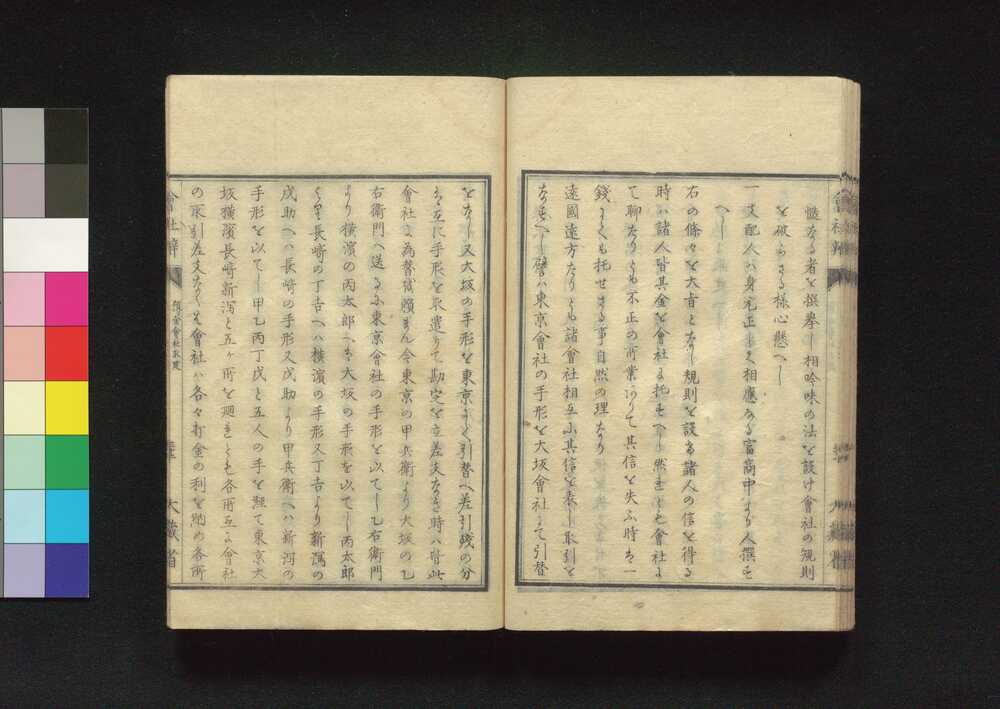 愨なる者を撰擧し相吟味の法を設け會社の規則
を破らさる樣心懸へし
一支配人ハ身元正しき相應なる富商中より人撰す
へし
右の條々を大旨となし規則を設ち諸人の信を得る
時ハ諸人皆其金を會社に托すへし然れとも會社に
て聊なりとも不正の所業ありて其信を失ふ時ハ一
錢にても托せさる事自然の理なり
遠國遠方なりとも諸會社相互に其信を表し取引を
なすへし譬ハ東京會社の手形を大坂會社にて引替
をなし又大坂の手形を東京にて引替へ差引殘の分
ハ互に手形を取遣りて勘定を立差支なき時ハ皆此
會社に為替を賴まん今東京の甲兵衛より大坂の乙
右衛門へ送るに東京會社の手形を以てし乙右衛門
より橫濱の丙太郎へハ大坂の手形を以てし丙太郎
より長崎の丁吉へハ橫濱の手形又丁吉より新瀉の
戊助へハ長崎の手形又戊助より甲兵衛へハ新瀉の
手形を以てし甲乙丙丁戊と五人の手を經て東京大
坂橫濱長崎新瀉と五ヶ所を廻るとも各所互に會社
の取引差支なく其會社ハ各々打金の利を納め各所
會社辨
大藏省